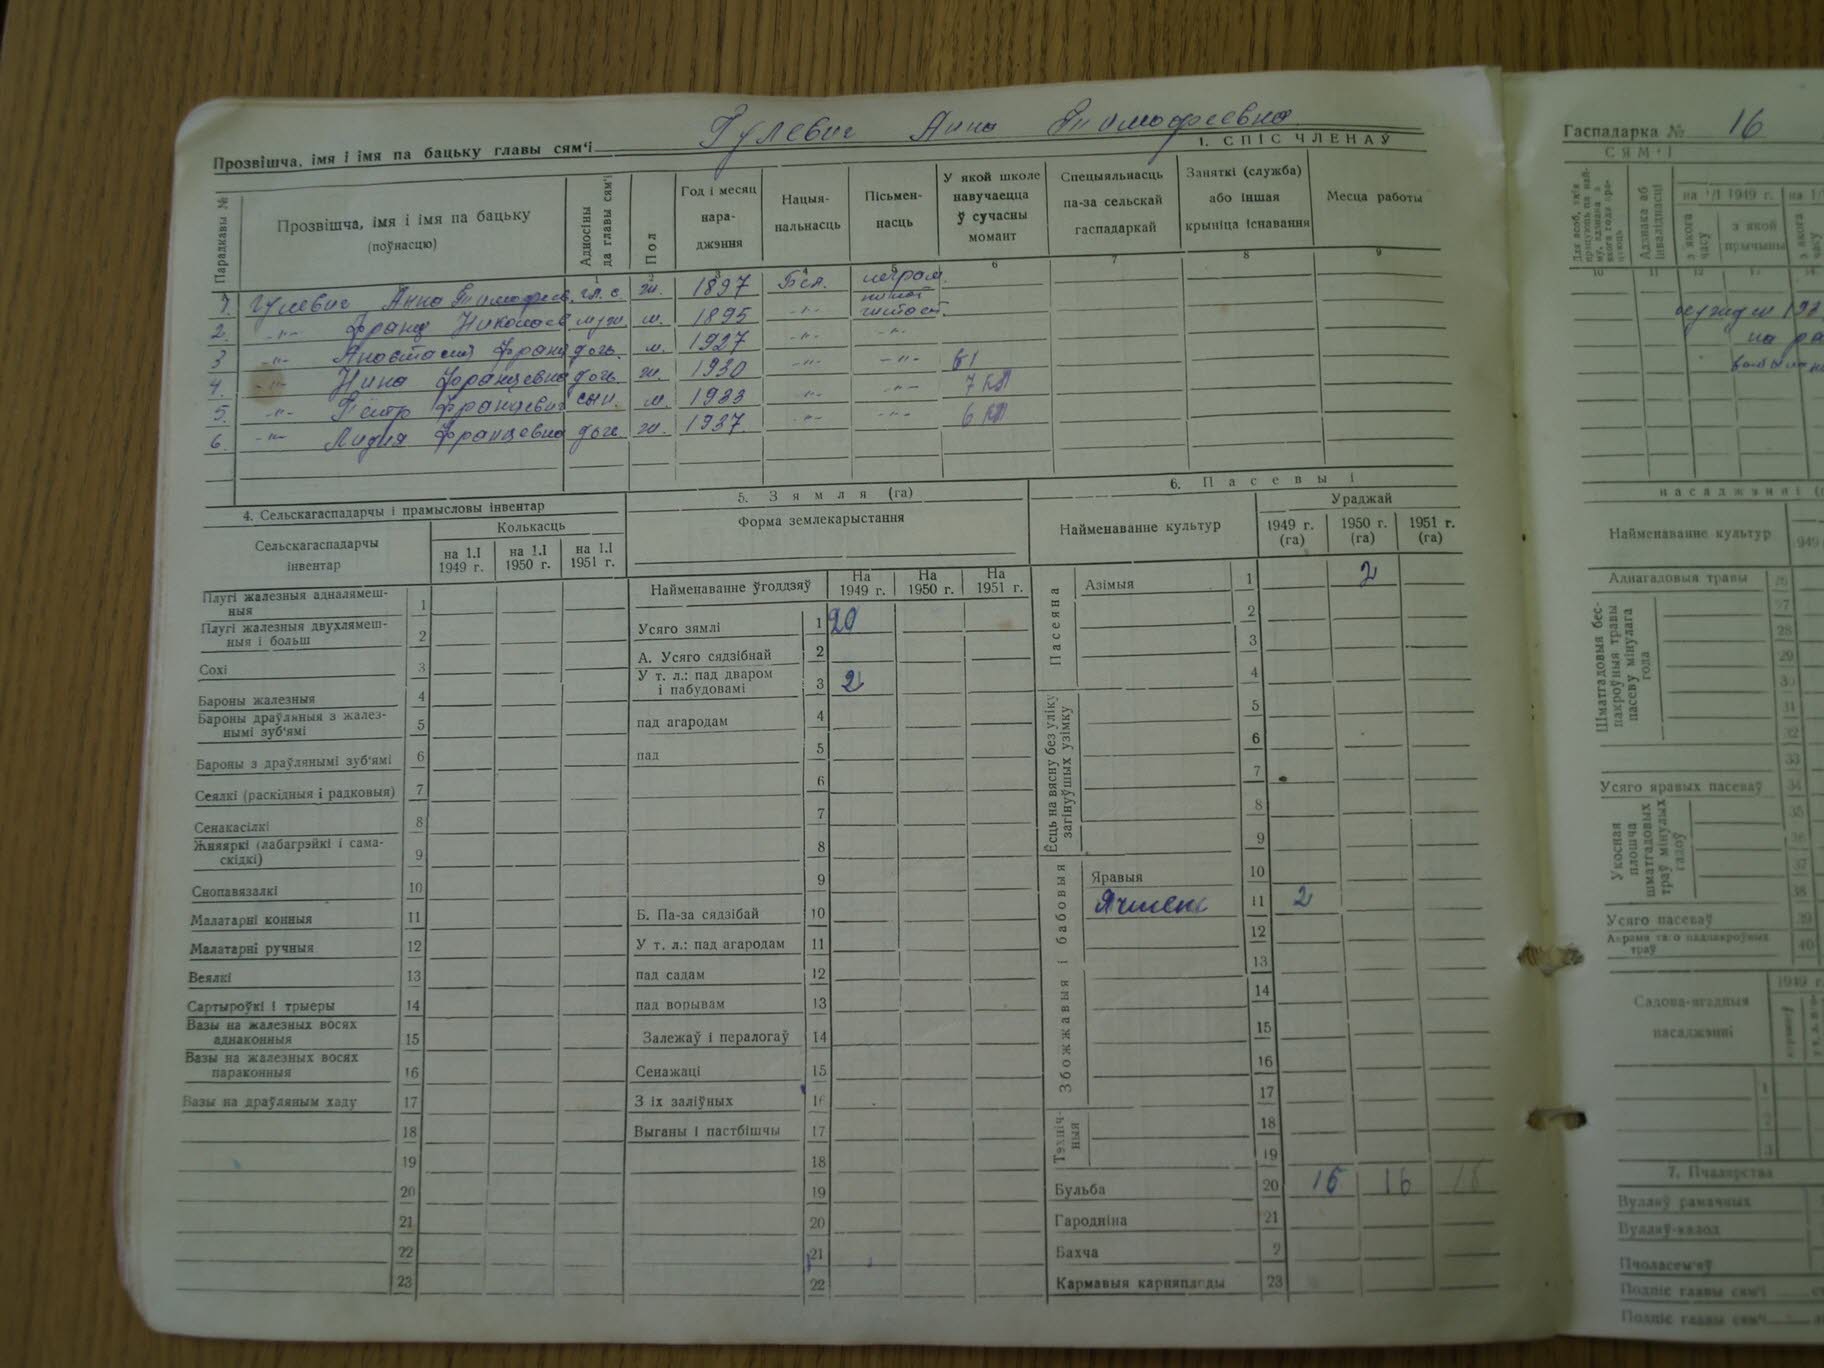 Прозвішча, імя і імя па бацьку главы сям'і Гулевич Анна Тимофеевна
1. СПІС ЧЛЕНАЎ
Парадкавы №
Прозвішча, імя і імя па бацьку (поўнасцю)
Адносіны да главы сям'і
Пол
Год і месяц нараджэння
Нацыянальнасць
Пісьменнасць
У якой школе навучаецца ў сучасны момант
Спецыяльнасць па-за сельскай гаспадаркай
Заняткі (служба) або іншая крыніца існавання
Месца работы
1 2 3 4 5 6 7 8 9
1. Гулевич Анна Тимофеев. гл. с. ж. 1897 Бел. неграм.
2. -"- Франц Николаев муж м. 1895 -"- читает
3 -"- Анастасия Франц дочь. м. 1927 -"- -"-
4. -"- Нина Францевна дочь. ж. 1930 -"- -"-
5. -"- Пётр Францевич сын. м. 1933 -"- -"- 7 кл
6. -"- Лидия Францевна дочь ж. 1937. -"- -"- 6 кл
4. Сельскагаспадарчы і прамысловы інвентар
Сельскагаспадарчы інвентар
Колькасць
на 1.I 1949 г.
на 1.I 1950 г.
на 1.I 1951 г.
Плугі жалезныя адналямешныя 1
Плугі жалезныя двухлямешныя і больш 2
Сохі 3
Бароны жалезныя 4
Бароны драўляныя з жалезнымі зуб'ямі 5
Бароны з драўлянымі зуб'ямі 6
Сеялкі (раскідныя і радковыя) 7
Сенакасілкі 8
Жняяркі (лабагрэйкі і самаскідкі) 9
Снопавязалкі 10
Малатарні конныя 11
Малатарні ручныя 12
Веялкі 13
Сартыроўкі і трыеры 14
Вазы на жалезных восях аднаконныя 15
Вазы на жалезных восях параконныя 16
Вазы на драўляным хаду 17
18
19
20
21
22
23
5. Зямля (га)
Форма землекарыстання
Найменаванне ўгоддзяў
На 1949 г.
На 1950 г.
На 1951 г.
Усяго зямлі 1 20
А. Усяго сядзібнай 2
У т. л.: пад дваром і пабудовамі 3 2
пад агародам 4
пад 5
6
7
8
9
Б. Па-за сядзібай 10
У т. л.: пад агародам 11
пад садам 12
пад ворывам 13
Залежаў і пералогаў 14
Сенажаці 15
З іх заліўных 16
Выганы і пастбішчы 17
18
19
20
21
22
6. Пасевы і
Найменаванне культур
Ураджай
1949 г. (га)
1950 г. (га)
1951 г. (га)
Пасеяна
Азімыя 1 2
2
3
4
Ёсць на вясну без уліку загінуўшых узімку
5
6
7
8
9
Збожжавыя і бабовыя
Яравыя 10
Ячмень 11 2
12
13
14
15
16
17
Тэхнічныя
18
19
Бульба 20 15 16
Гародніна 21
Бахча 2
Кармавыя карняплоды 23
Гаспадарка № 16
СЯМ'І
Адзнака аб інваліднасці
на 1/I 1949 г.
з якога часу
з якой прычыны
10 11 12 13 14
насаджэнні
Найменаванне культур
1949
Аднагадовыя травы 26
Шматгадовыя беспакроўныя травы пасеву мінулага года
27
28
29
30
31
32
33
Усяго яравых пасеваў 34
Укосная плошча шматгадовых траў мінулых гадоў
35
36
37
38
Усяго пасеваў 39
Акрамя таго падпакроўных траў 40
Садова-ягадныя насаджэнні
1949 г.
1
2
3
7. Пчалярства
Вулляў рамачных
Вулляў-калод
Пчоласем'яў
Подпіс главы сям'і
Подпіс главы сям'і